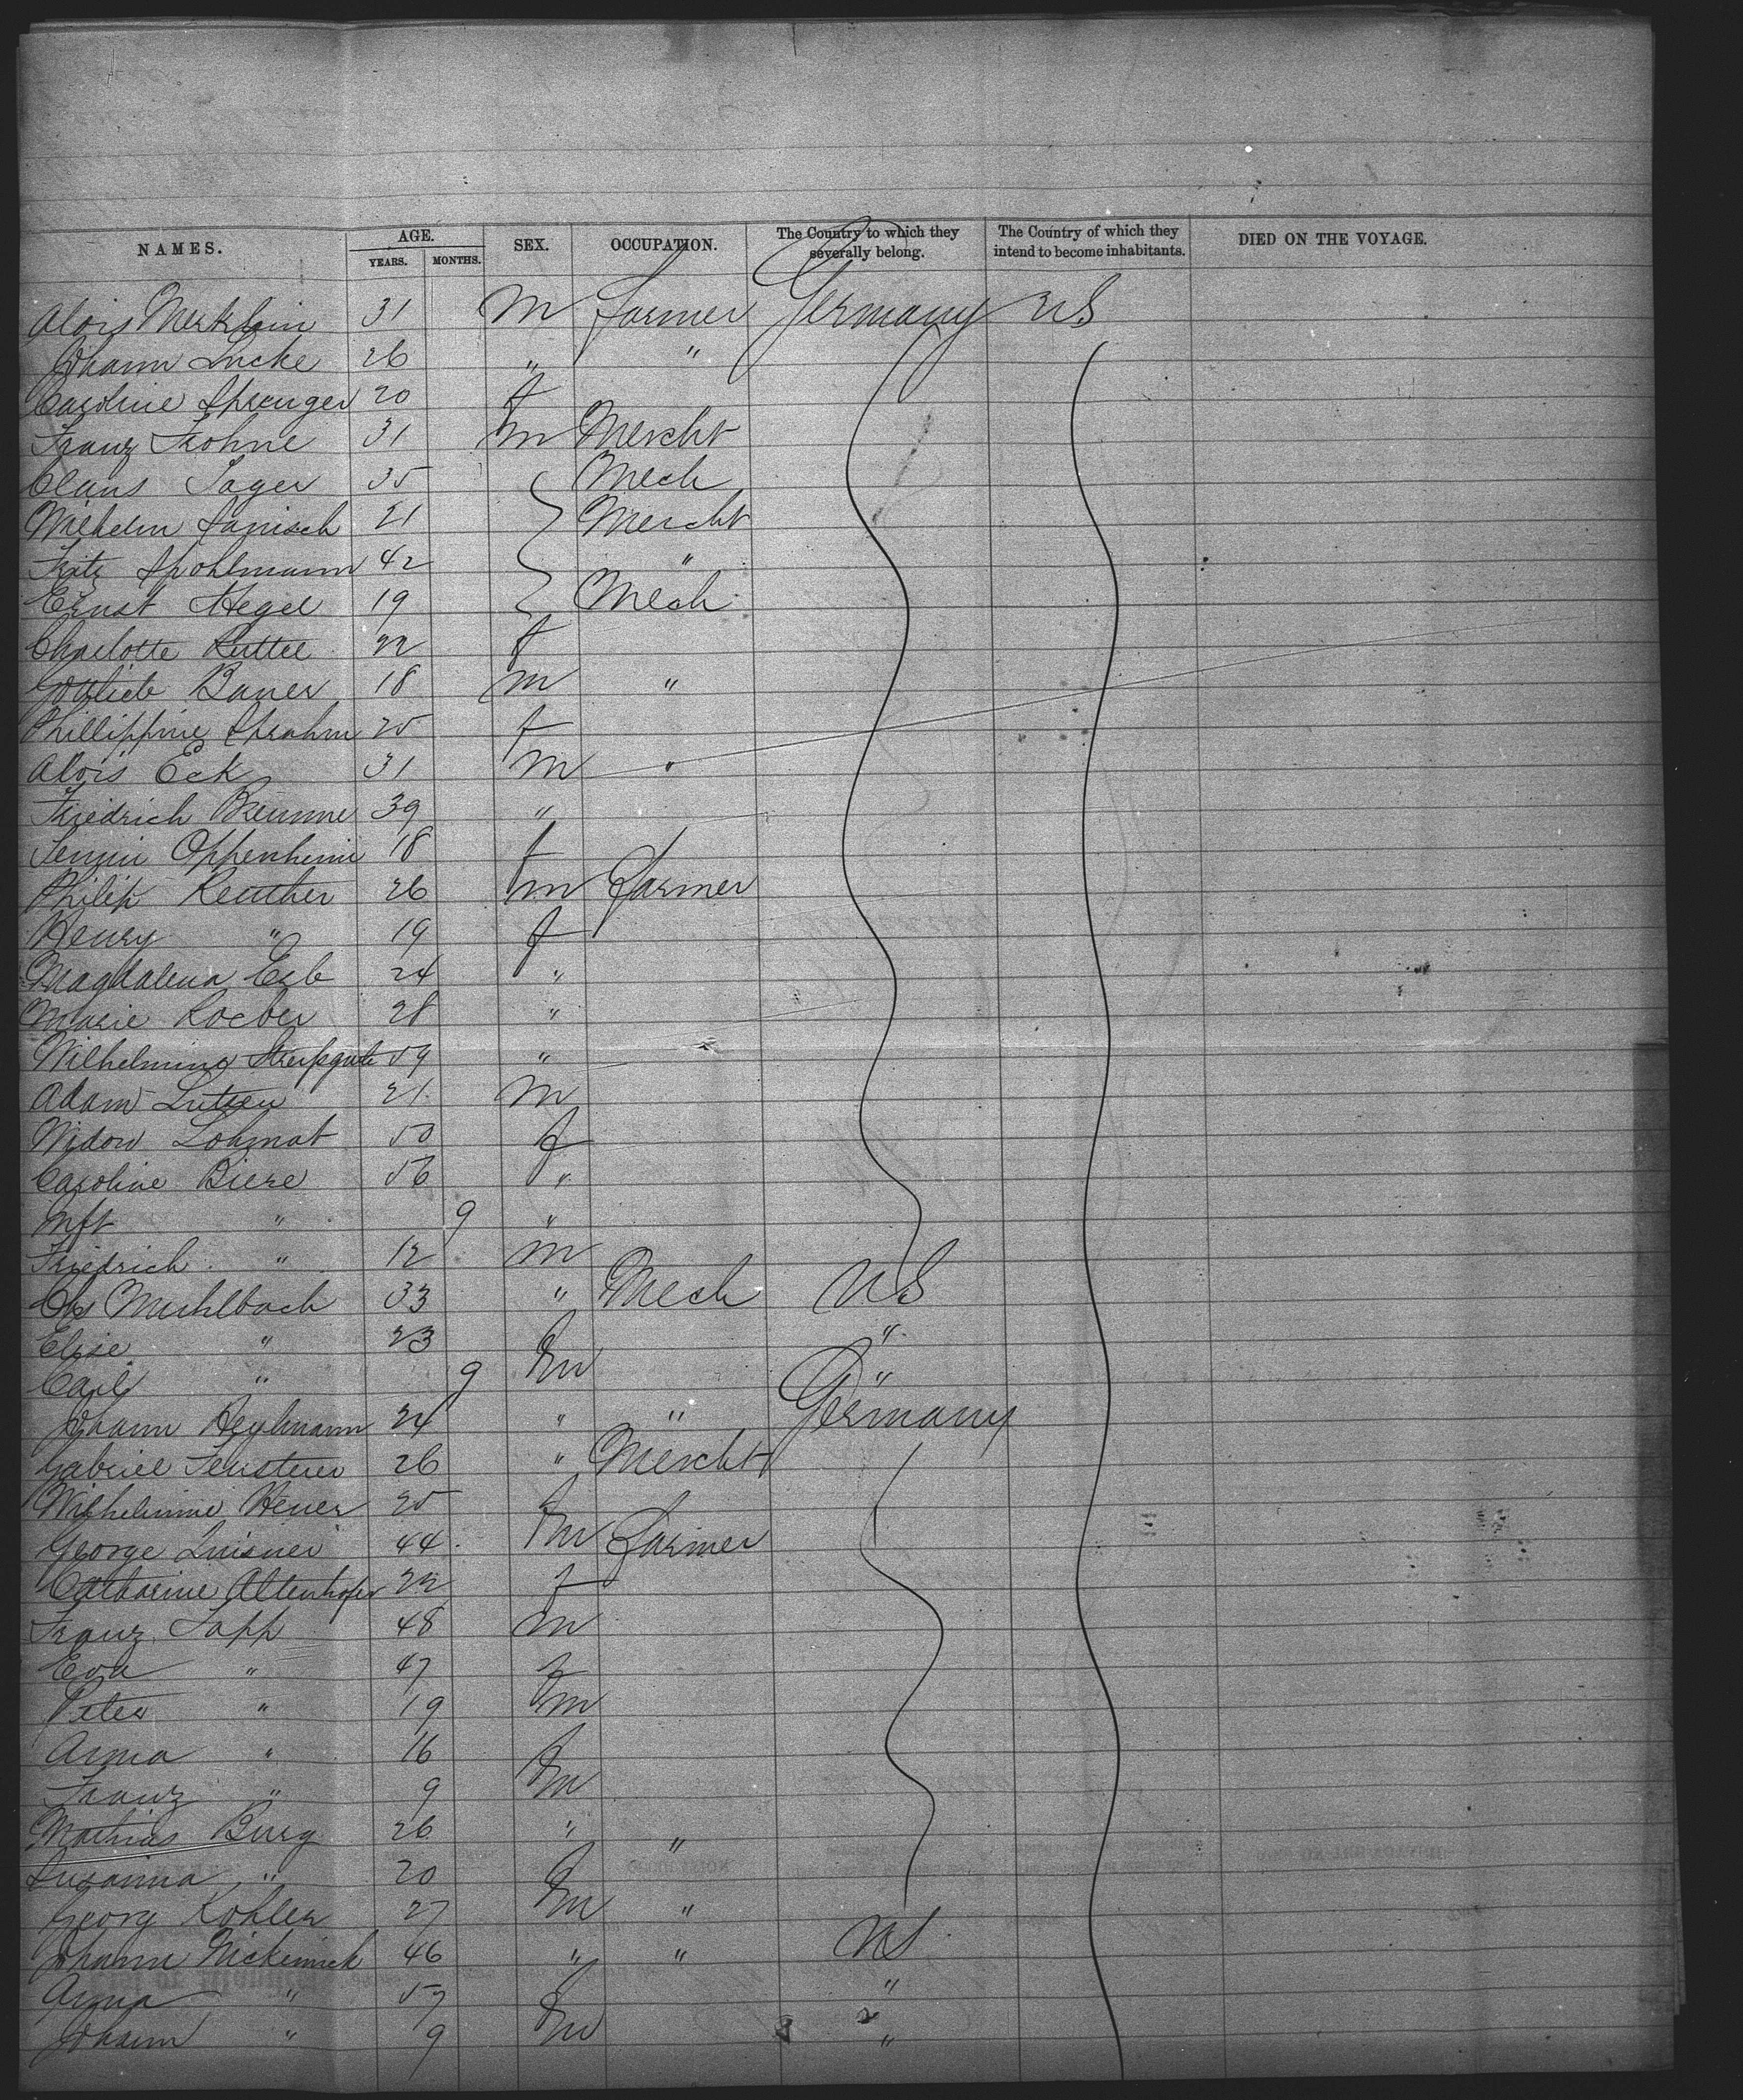 NAMES. AGE. YEARS. MONTHS. SEX. OCCUPATION. The Country to which they severally belong. The Country of which they intend to become inhabitants. DIED ON THE VOYAGE.
Alois Merklein 31 m farmer Germany US
Johann Lucke 26 " "
Caroline Sprenger 20 f
Franz Frohne 31 m Mercht
Claus Sager 35 Mech
Wilhelm Janisch 21 Mercht
Fritz Spohlmann 42 "
Ernst Hegel 19 Mech
Charlotte Rutter 22 f
Gottlieb Bauer 18 m "
Phillippine Sprahm 25 f
Alois Eck 31 m "
Friedrich Breunne 39 "
Jennie Oppenheim 18 f
Philip Reuther 26 m farmer
Henry " 19 f
Magdalena Erb 24 "
Marie Roeber 28 "
Wilhelmina 59 "
Adam Lutzen 21 m
Widow Lohmat 50 f
Caroline Biere 56 "
Inft " 9 "
Friedrich " 12 m
Chs Muhlbach 33 " Mech US
Elise " 23 f "
Carl " 9 m "
Johann Heylmann 24 " " Germany
Gabriel 26 " Mercht
Wilhelmine Heuer 25 f
George 44 m farmer
Catharine Altenhofer 22 f
Franz Sapp 48 m
Eva " 47 f
Peter " 19 m
Anna " 16 f
Franz " 9 m
Mathias Burg 26 " "
Susanna " 20 f
Georg Kohler 27 m "
Johann 46 " " US
Anna " 57 f "
Johann " 9 m "